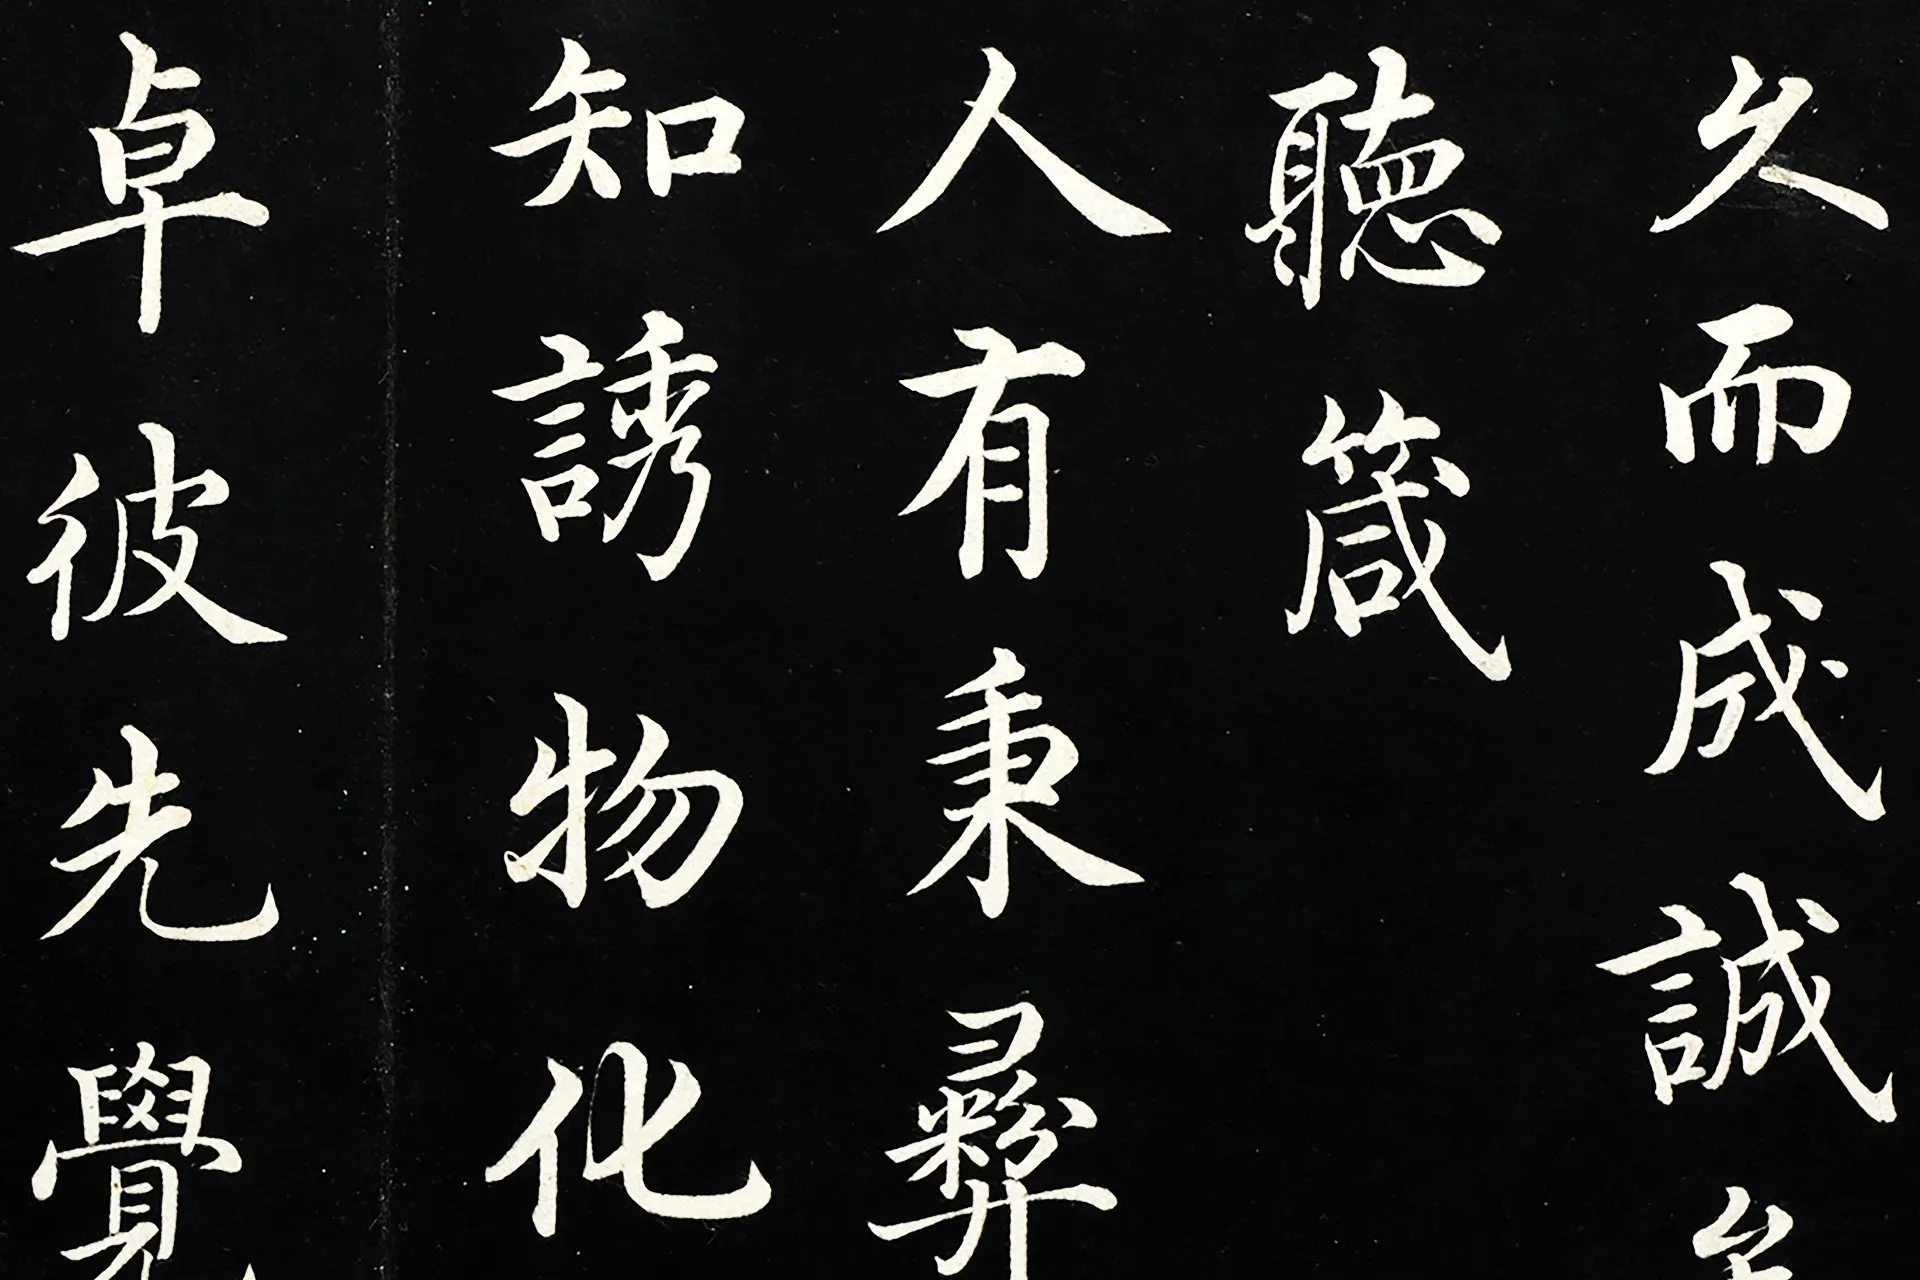 久而成誠矣
聽箴
人有秉彝
知誘物化
卓彼先覺